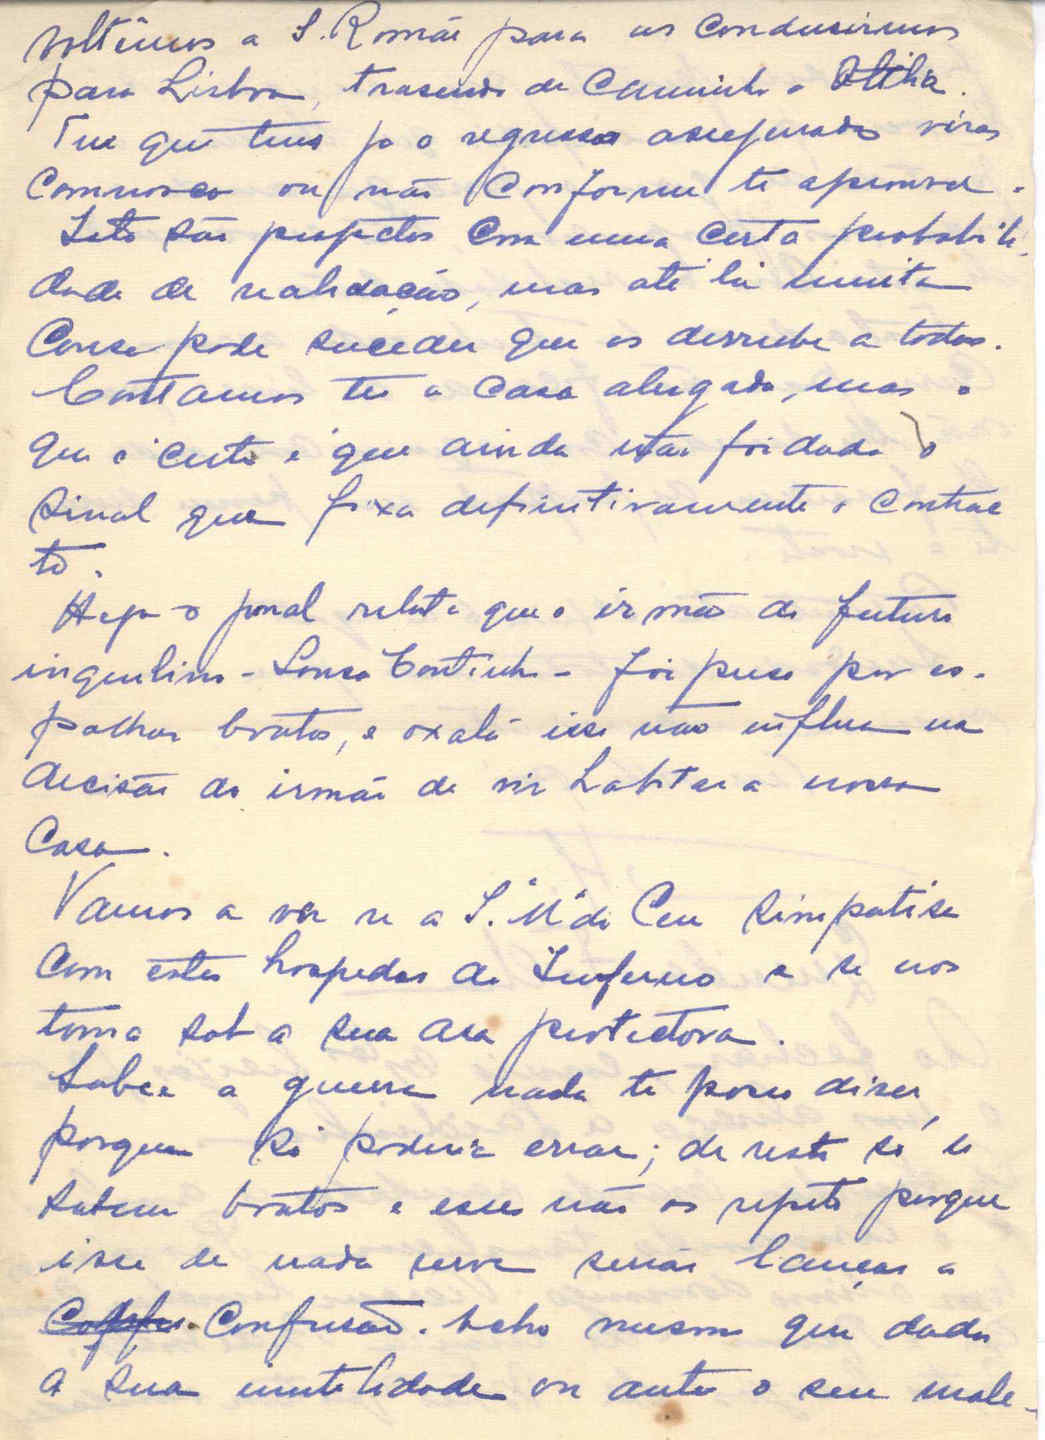 voltêmos a S. Romão para os condusirmos
para Lisboa, trasendo de caminho a
Tu que tens já o regresso assegurado virás
comnosco ou não conforme te aprouver.
Isto são projectos com uma certa probabili-
dade de realisação, mas até lá muita
cousa pode suceder que os derrube a todos.
Contamos ter a casa alugada, mas o
que é certo é que ainda não foi dado o
sinal que fixa definitivamente o contrac
to.
Hoje o jornal relata que o irmão do futuro
inquilino - Sousa Coutinho - foi preso por es-
palhar boatos, e oxalá isso não influa na
decisão do irmão de vir habitar a nossa
casa.
Vamos a ver se a S.ª M.ª do Ceu simpatisa
com estes hospedes do Inferno e se nos
toma sob a sua asa protectora.
Sobre a guerra nada te posso diser,
porque só poderia errar; de resto só se
sabem boatos e esses não os repito porque
isso de nada serve senão lançar a
confusão. Acho mesmo que dada
a sua inutilidade ou antes o seu male-